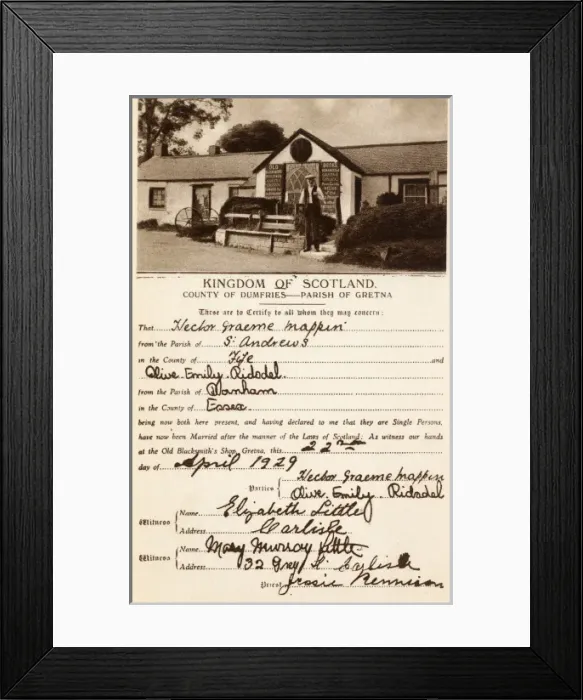 KINGDOM OF SCOTLAND.
COUNTY OF DUMFRIES—PARISH OF GRETNA
These are to Certify to all whom they may concern:
That Hector Graeme Mappin
from the Parish of St Andrews
in the County of Fife and
Olive Emily Ridsdel
from the Parish of Wanham
in the County of Essex
being now both here present, and having declared to me that they are Single Persons,
have now been Married after the manner of the Laws of Scotland: As witness our hands
at the Old Blacksmith's Shop, Gretna, this 22nd
day of April 1929
Parties Hector Graeme Mappin
Olive Emily Ridsdel
Witness Name Elizabeth Little
Address Carlisle
Witness Name Mary Murray Little
Address 32 Grey St Carlisle
Priest